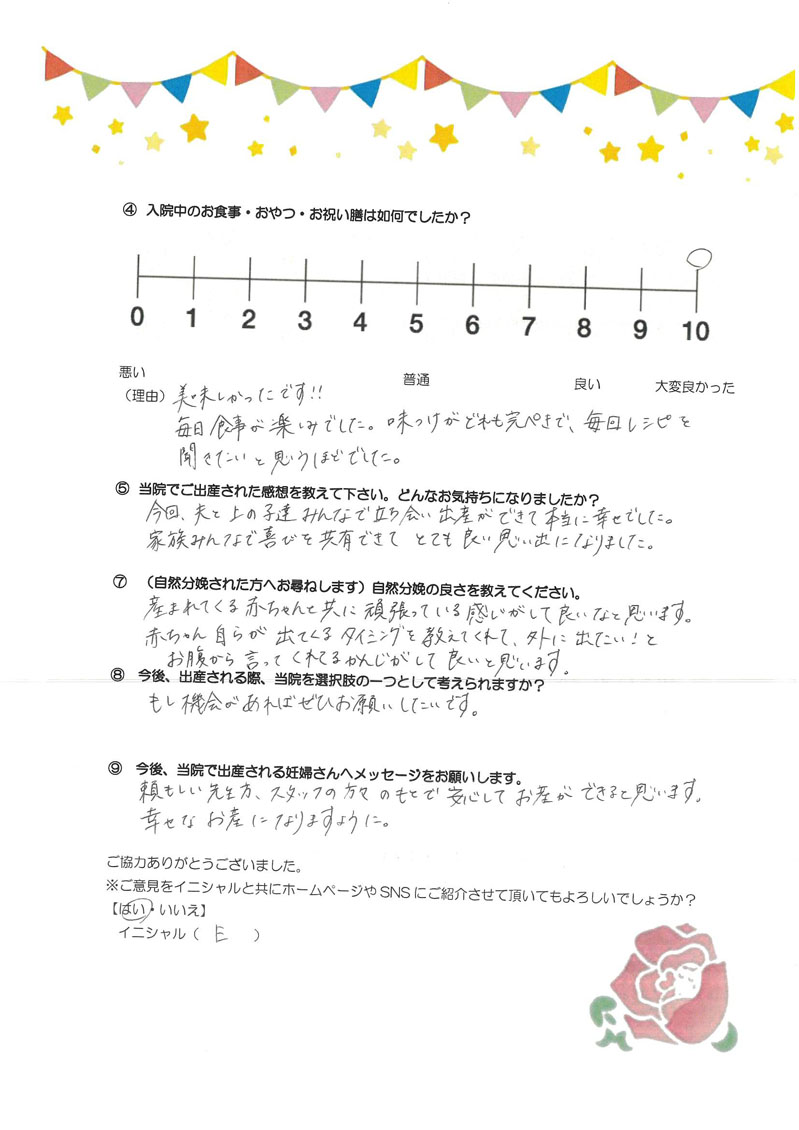 ④ 入院中のお食事・おやつ・お祝い膳は如何でしたか？
0 1 2 3 4 5 6 7 8 9 10
悪い 普通 良い 大変良かった
（理由）美味しかったです!!
毎日食事が楽しみでした。味つけがどれも完ぺきで、毎回レシピを
聞きたいと思うほどでした。
⑤ 当院でご出産された感想を教えて下さい。どんなお気持ちになりましたか？
今回、夫と上の子達みんなで立ち会い出産ができて本当に幸せでした。
家族みんなで喜びを共有できてとても良い思い出になりました。
⑦ （自然分娩された方へお尋ねします）自然分娩の良さを教えてください。
産まれてくる赤ちゃんと共に頑張っている感じがして良いなと思います。
赤ちゃん自らが出てくるタイミングを教えてくれて、外に出たい！と
お腹から言ってくれてるかんじがして良いと思います。
⑧ 今後、出産される際、当院を選択肢の一つとして考えられますか？
もし機会があればぜひお願いしたいです。
⑨ 今後、当院で出産される妊婦さんへメッセージをお願いします。
頼もしい先生方、スタッフの方々のもとで安心してお産ができると思います。
幸せなお産になりますように。
ご協力ありがとうございました。
※ご意見をイニシャルと共にホームページやSNSにご紹介させて頂いてもよろしいでしょうか？
【はい・いいえ】
イニシャル（ E ）